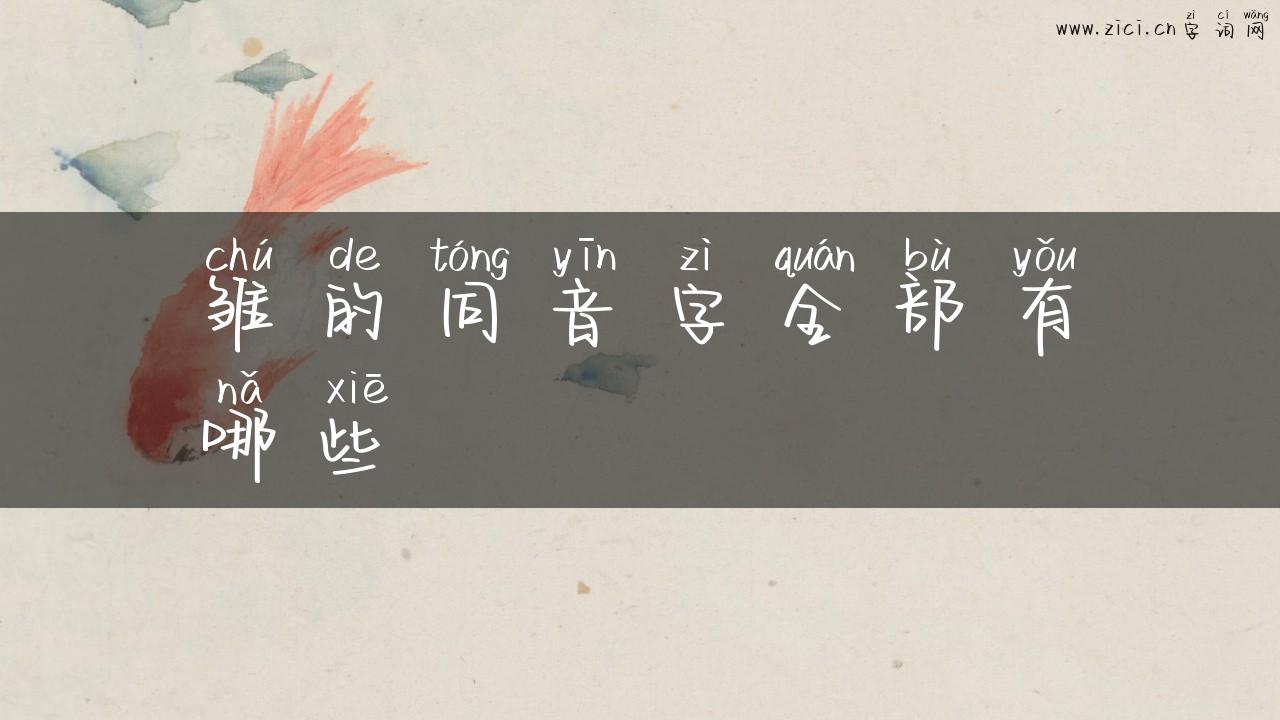 zì cí wǎng
www.zici.cn 字词网
chú de tóng yīn zì quán bù yǒu
雏的同音字全部有
nǎ xiē
哪些